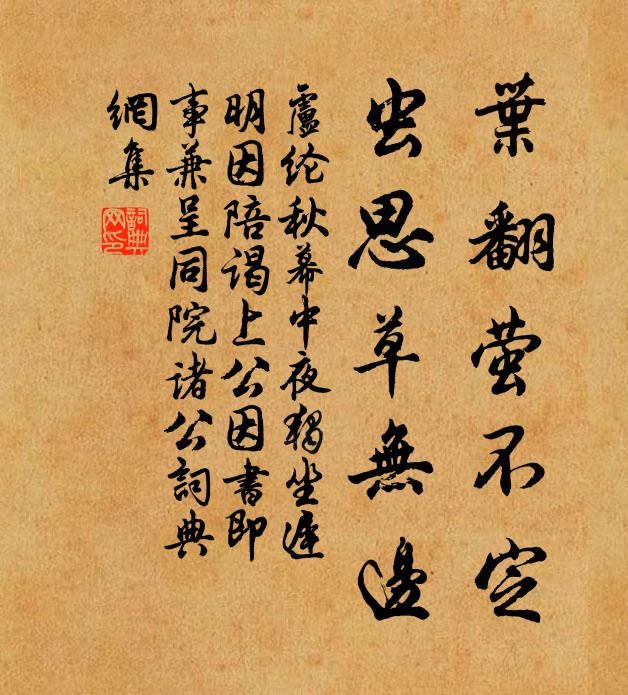 葉翻萤不定
虫思草無邊
盧纶秋幕中夜獨坐遲
明因陪谒上公因書即
事兼呈同院诸公詞典
網集
詞典網印